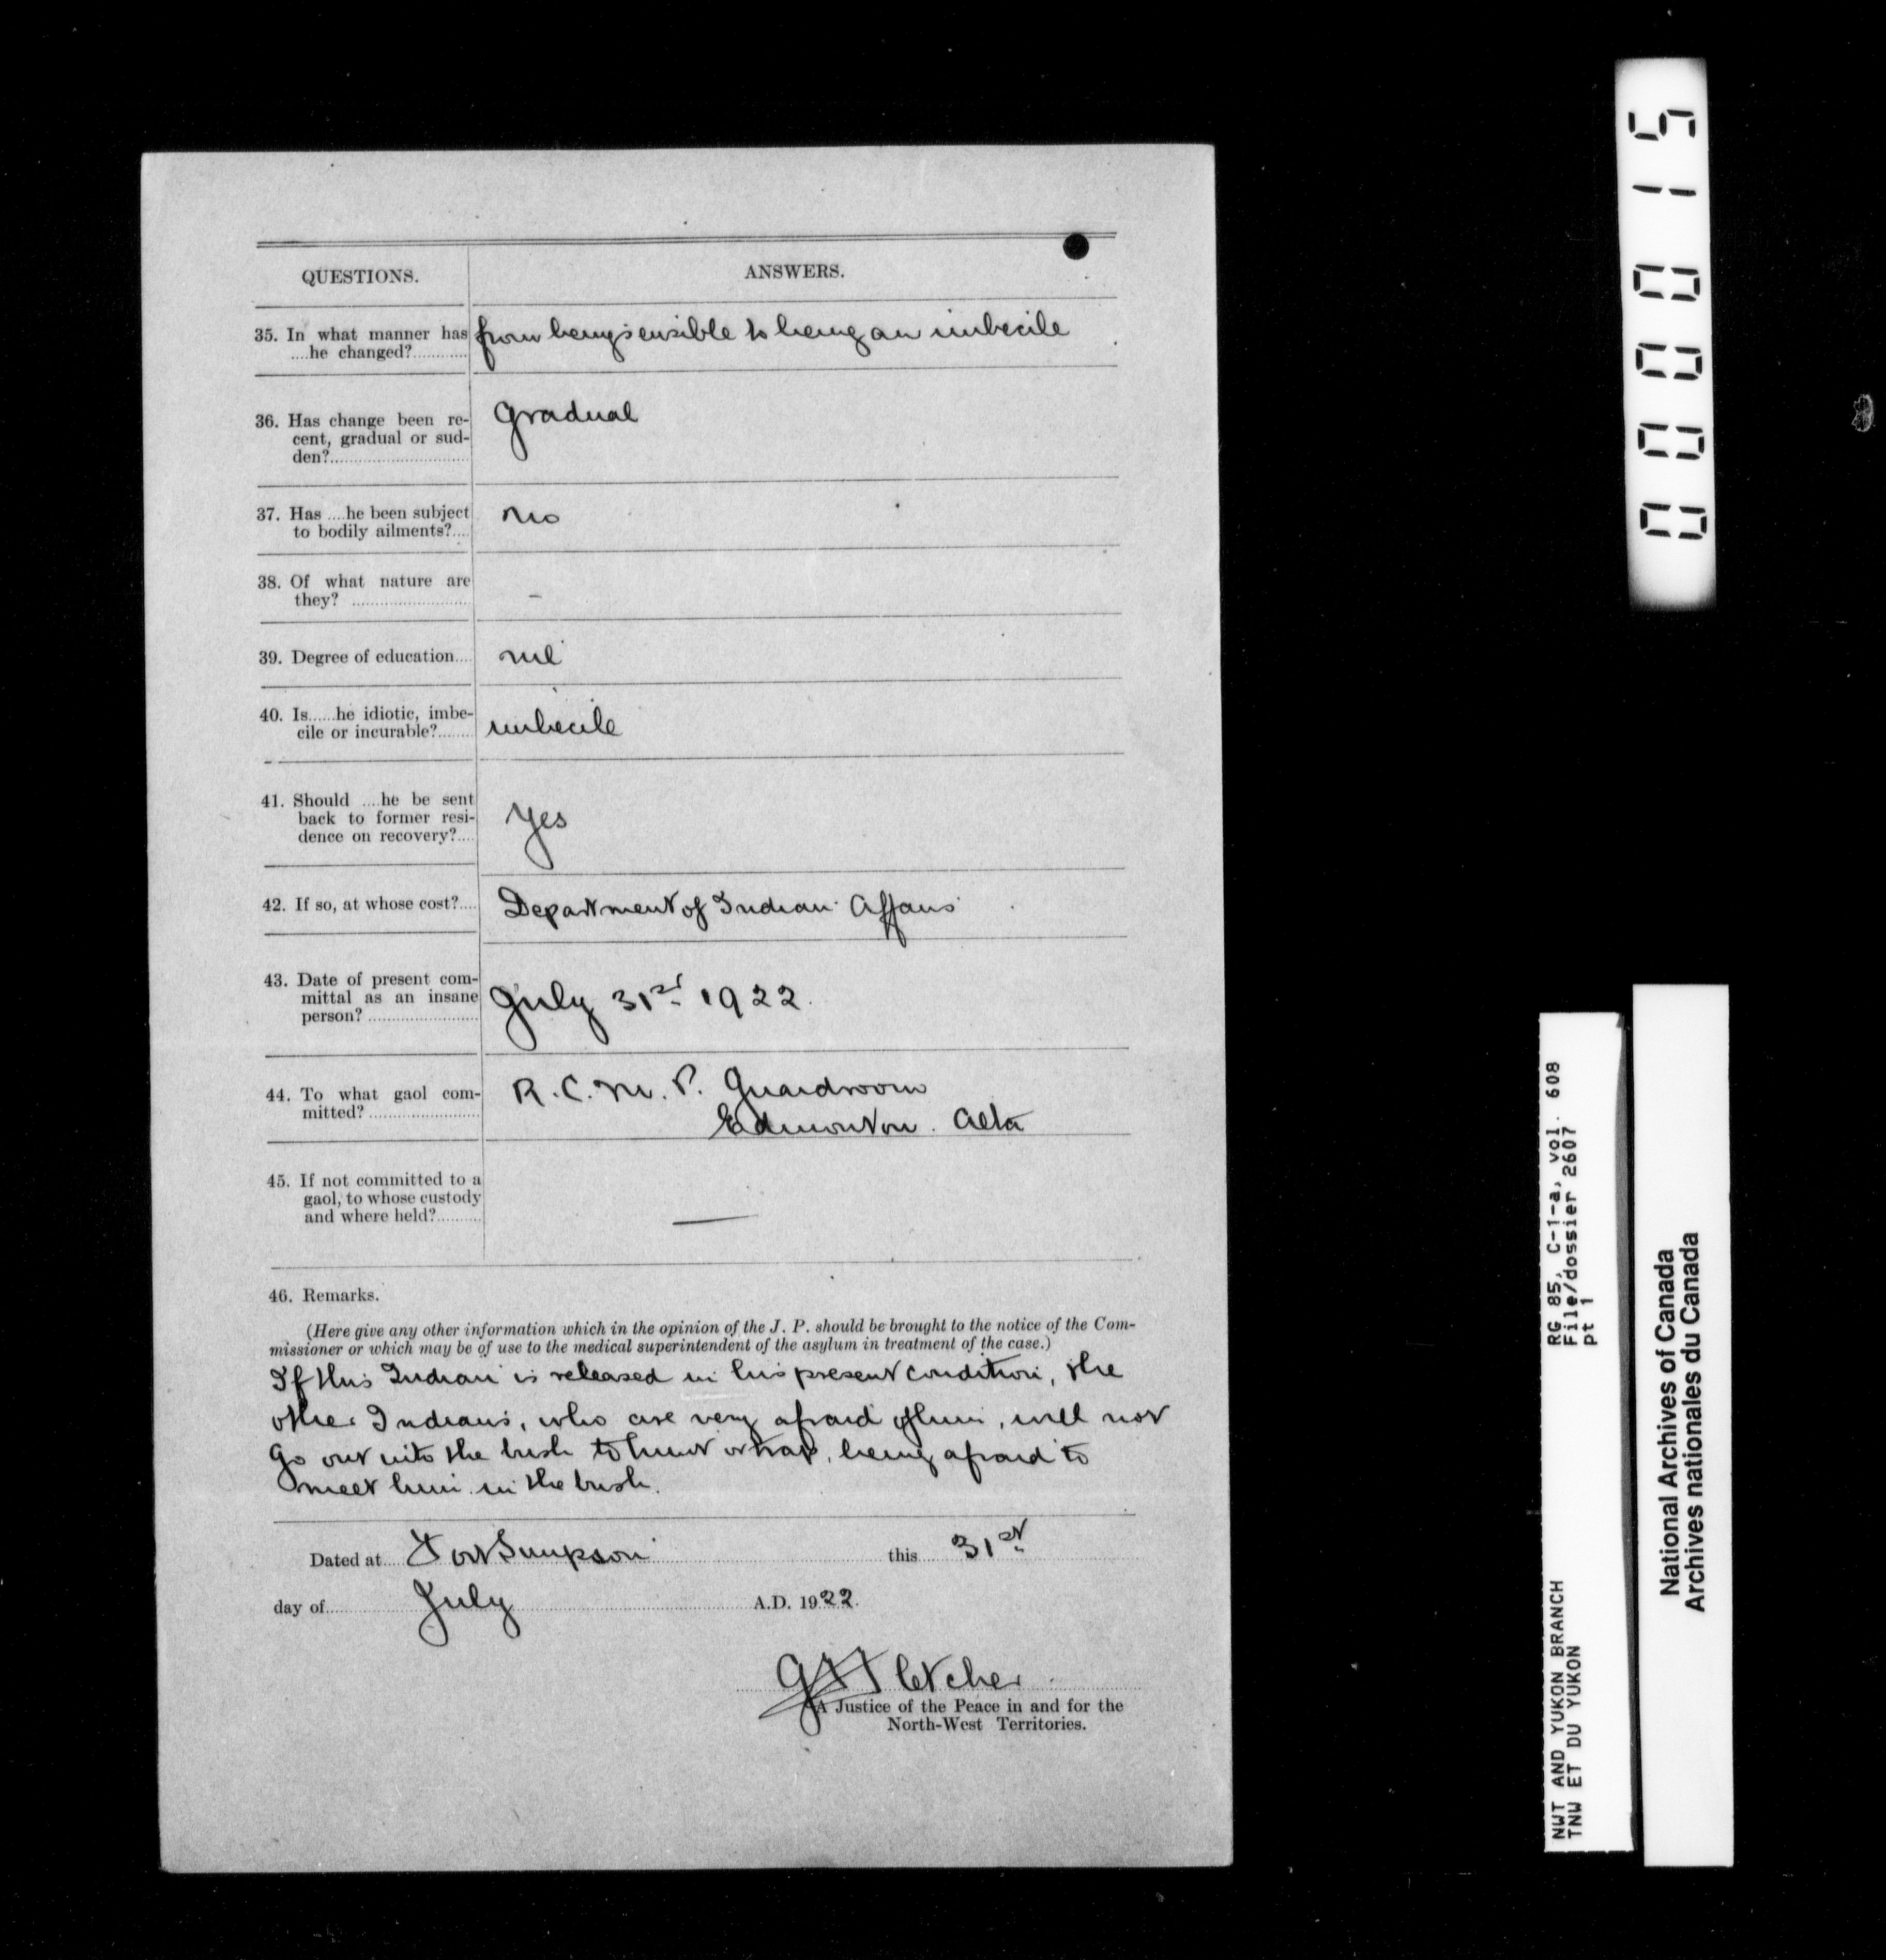 QUESTIONS. ANSWERS.
35. In what manner has
....he changed?............ from being sensible to being an imbecile
36. Has change been re-
cent, gradual or sud-
den?.............................. gradual
37. Has ....he been subject
to bodily ailments?.... no
38. Of what nature are
they? ......................... -
39. Degree of education.... nil
40. Is......he idiotic, imbe-
cile or incurable?........ imbecile
41. Should ....he be sent
back to former resi-
dence on recovery?.... Yes
42. If so, at whose cost?.... Department of Indian Affairs
43. Date of present com-
mittal as an insane
person? ........................ July 31st 1922.
44. To what gaol com-
mitted? ........................ R.C.M.P. Guardroom
Edmonton. Alta
45. If not committed to a
gaol, to whose custody
and where held?.......... —
46. Remarks.
(Here give any other information which in the opinion of the J. P. should be brought to the notice of the Com-
missioner or which may be of use to the medical superintendent of the asylum in treatment of the case.)
If this Indian is released in his present condition, the
other Indians, who are very afraid of him, will not
go out into the bush to hunt or trap, being afraid to
meet him in the bush.
Dated at.... Fort Simpson this..... 31st
day of............ July A.D. 1922.
G H Fletcher
A Justice of the Peace in and for the
North-West Territories.
000015
RG 85, C-1-a, vol. 608
File/dossier 2607
pt 1
NWT AND YUKON BRANCH
TNW ET DU YUKON
National Archives of Canada
Archives nationales du Canada